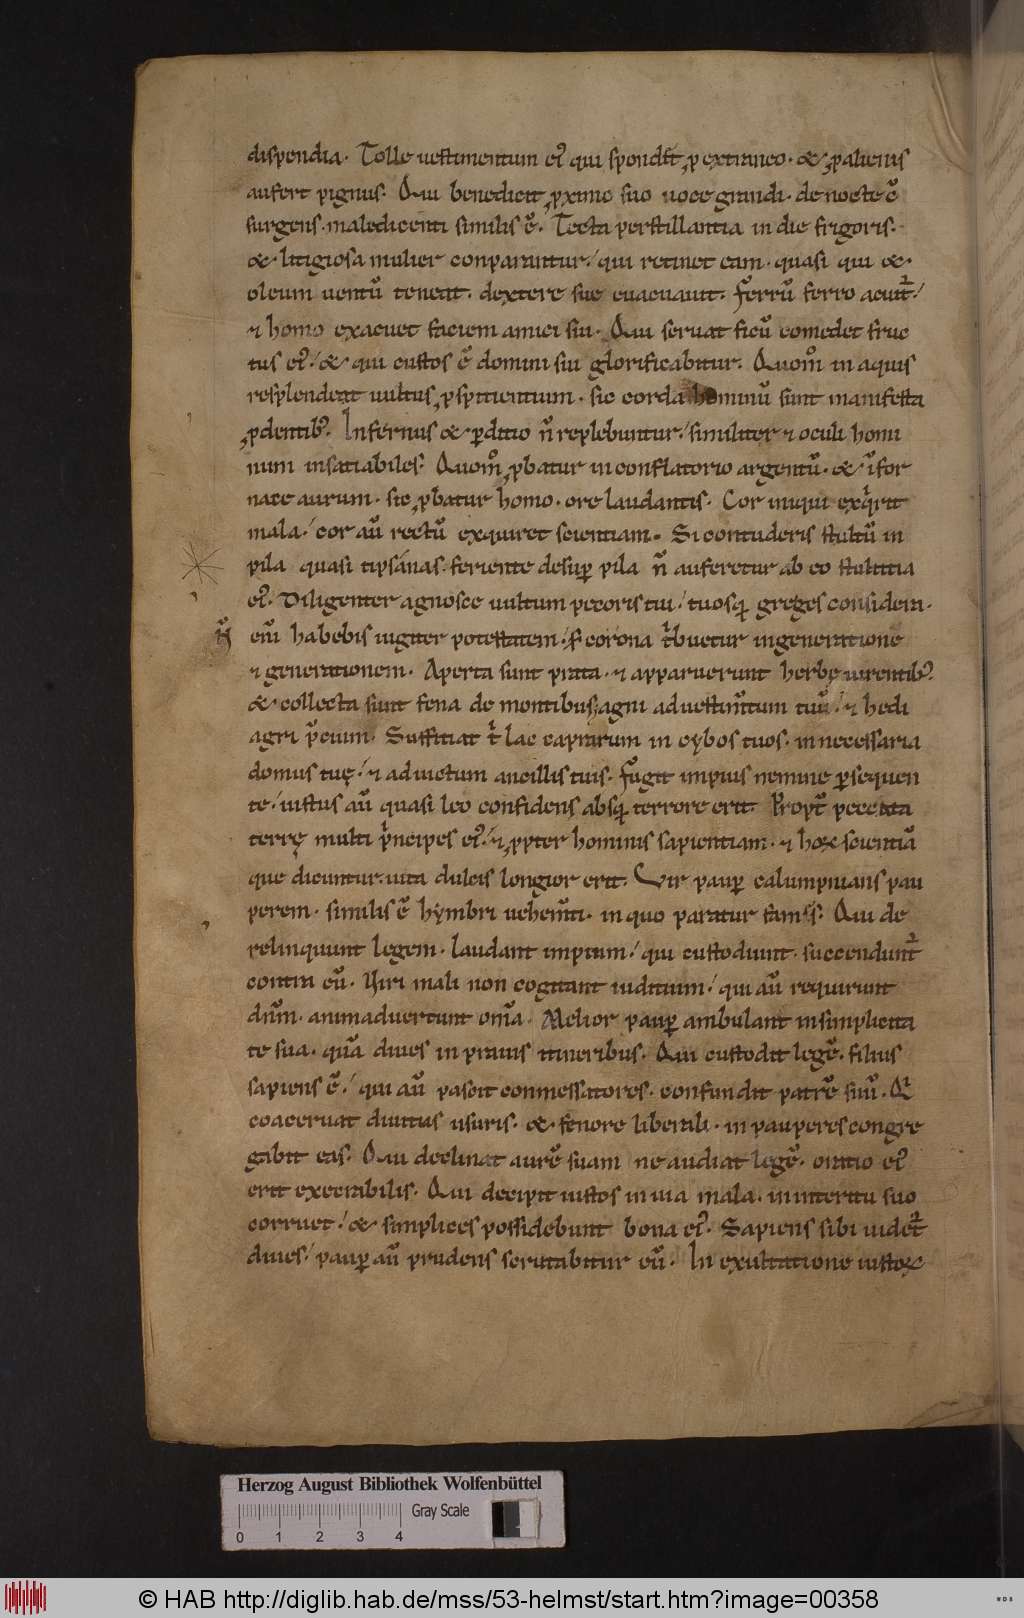 dispendia. Tolle uestimentum ei᾽ qui spondit ꝓ extraneo. & ꝓ alienis
aufert pignus. Qui benedicit ꝓximo suo uoce grandi. de nocte c̄
surgens. maledicenti similis ē. Tecta perstillantia in die frigoris.
& litigiosa mulier conparantur / qui retinet eam. quasi qui &
oleum uentū teneat. dextere sue euacuauit. ferrū ferro acuit᷑ /
⁊ homo exacuet faciem amici sui. Qui seruat ficū comedet fruc
tus ei᾽ / & qui custos ē domini sui glorificabitur. Quom̊ in aquis
resplendeat uultus ꝓspitientium. sic corda hominū sunt manifesta
ꝓdentib᾽. Infernus & ꝑditio n̄ replebuntur / similiter ⁊ oculi homi
num insatiabiles. Quom̊ ꝓbatur in conflatorio argentū. & ī for
nace aurum. sic ꝓbatur homo. ore laudantis. Cor iniqui exqͥrit
mala / cor aū rectū exquiret scientiam. Si contuderis stultū in
pila quasi tipsanas. feriente desuꝑ pila n̄ auferetur ab eo stultitia
ei᾽. Diligenter agnosce uultum pecoris tui / tuosqꝫ greges considera.
n̄
em̄ habebis iugiter potestatem / sꝫ corona tͥbuetur in generatione
⁊ generationem. Aperta sunt prata. ⁊ apparuerunt herbę uirentib᾽.
& collecta sunt fena de montibus. agni ad uestim̄tum tuū / ⁊ hedi
agri p̄cium. Suffitiat tͥ lac caprarum in cybos tuos. in necessaria
domus tuę / ⁊ ad uictum ancillis tuis. fugit impius nemine ꝑsequen
te / iustus aū quasi leo confidens absqꝫ terrore erit. Propt᷑ peccata
terrę multi pͥncipes ei᾽ / ⁊ ꝓpter hominis sapientiam. ⁊ hoꝝ scientiā
que dicuntur. uita ducis longior erit. Vir pauꝑ calumpnians pau
perem. similis ē hymbri uehem̄ti. in quo paratur famis. Qui de
relinquunt legem. laudant impium / qui custodiunt. succendunt᷑
contra eū. Viri mali non cogitant iuditium / qui aū requirunt
dn̄m. animaduertunt om̄a. Melior pauꝑ ambulans in simplicita
te sua. quā diues in prauis itineribus. Qui custodit legē. filius
sapiens ē / qui aū pascit conmessatores. confundit patrē suū. Qͥ
coaceruat diuitias usuris. & fenore liberali. in pauperes congre
gabit eas. Qui declinat aurē suam ne audiat legē. oratio ei᾽
erit execrabilis. Qui decipit iustos in uia mala. in interitu suo
corruet / & simplices possidebunt bona ei᾽. Sapiens sibi uidet᷑
diues / pauꝑ aū prudens scrutabitur eū. In exultatione iustoꝝ
Herzog August Bibliothek Wolfenbüttel
Gray Scale
0 1 2 3 4
© HAB http://diglib.hab.de/mss/53-helmst/start.htm?image=00358